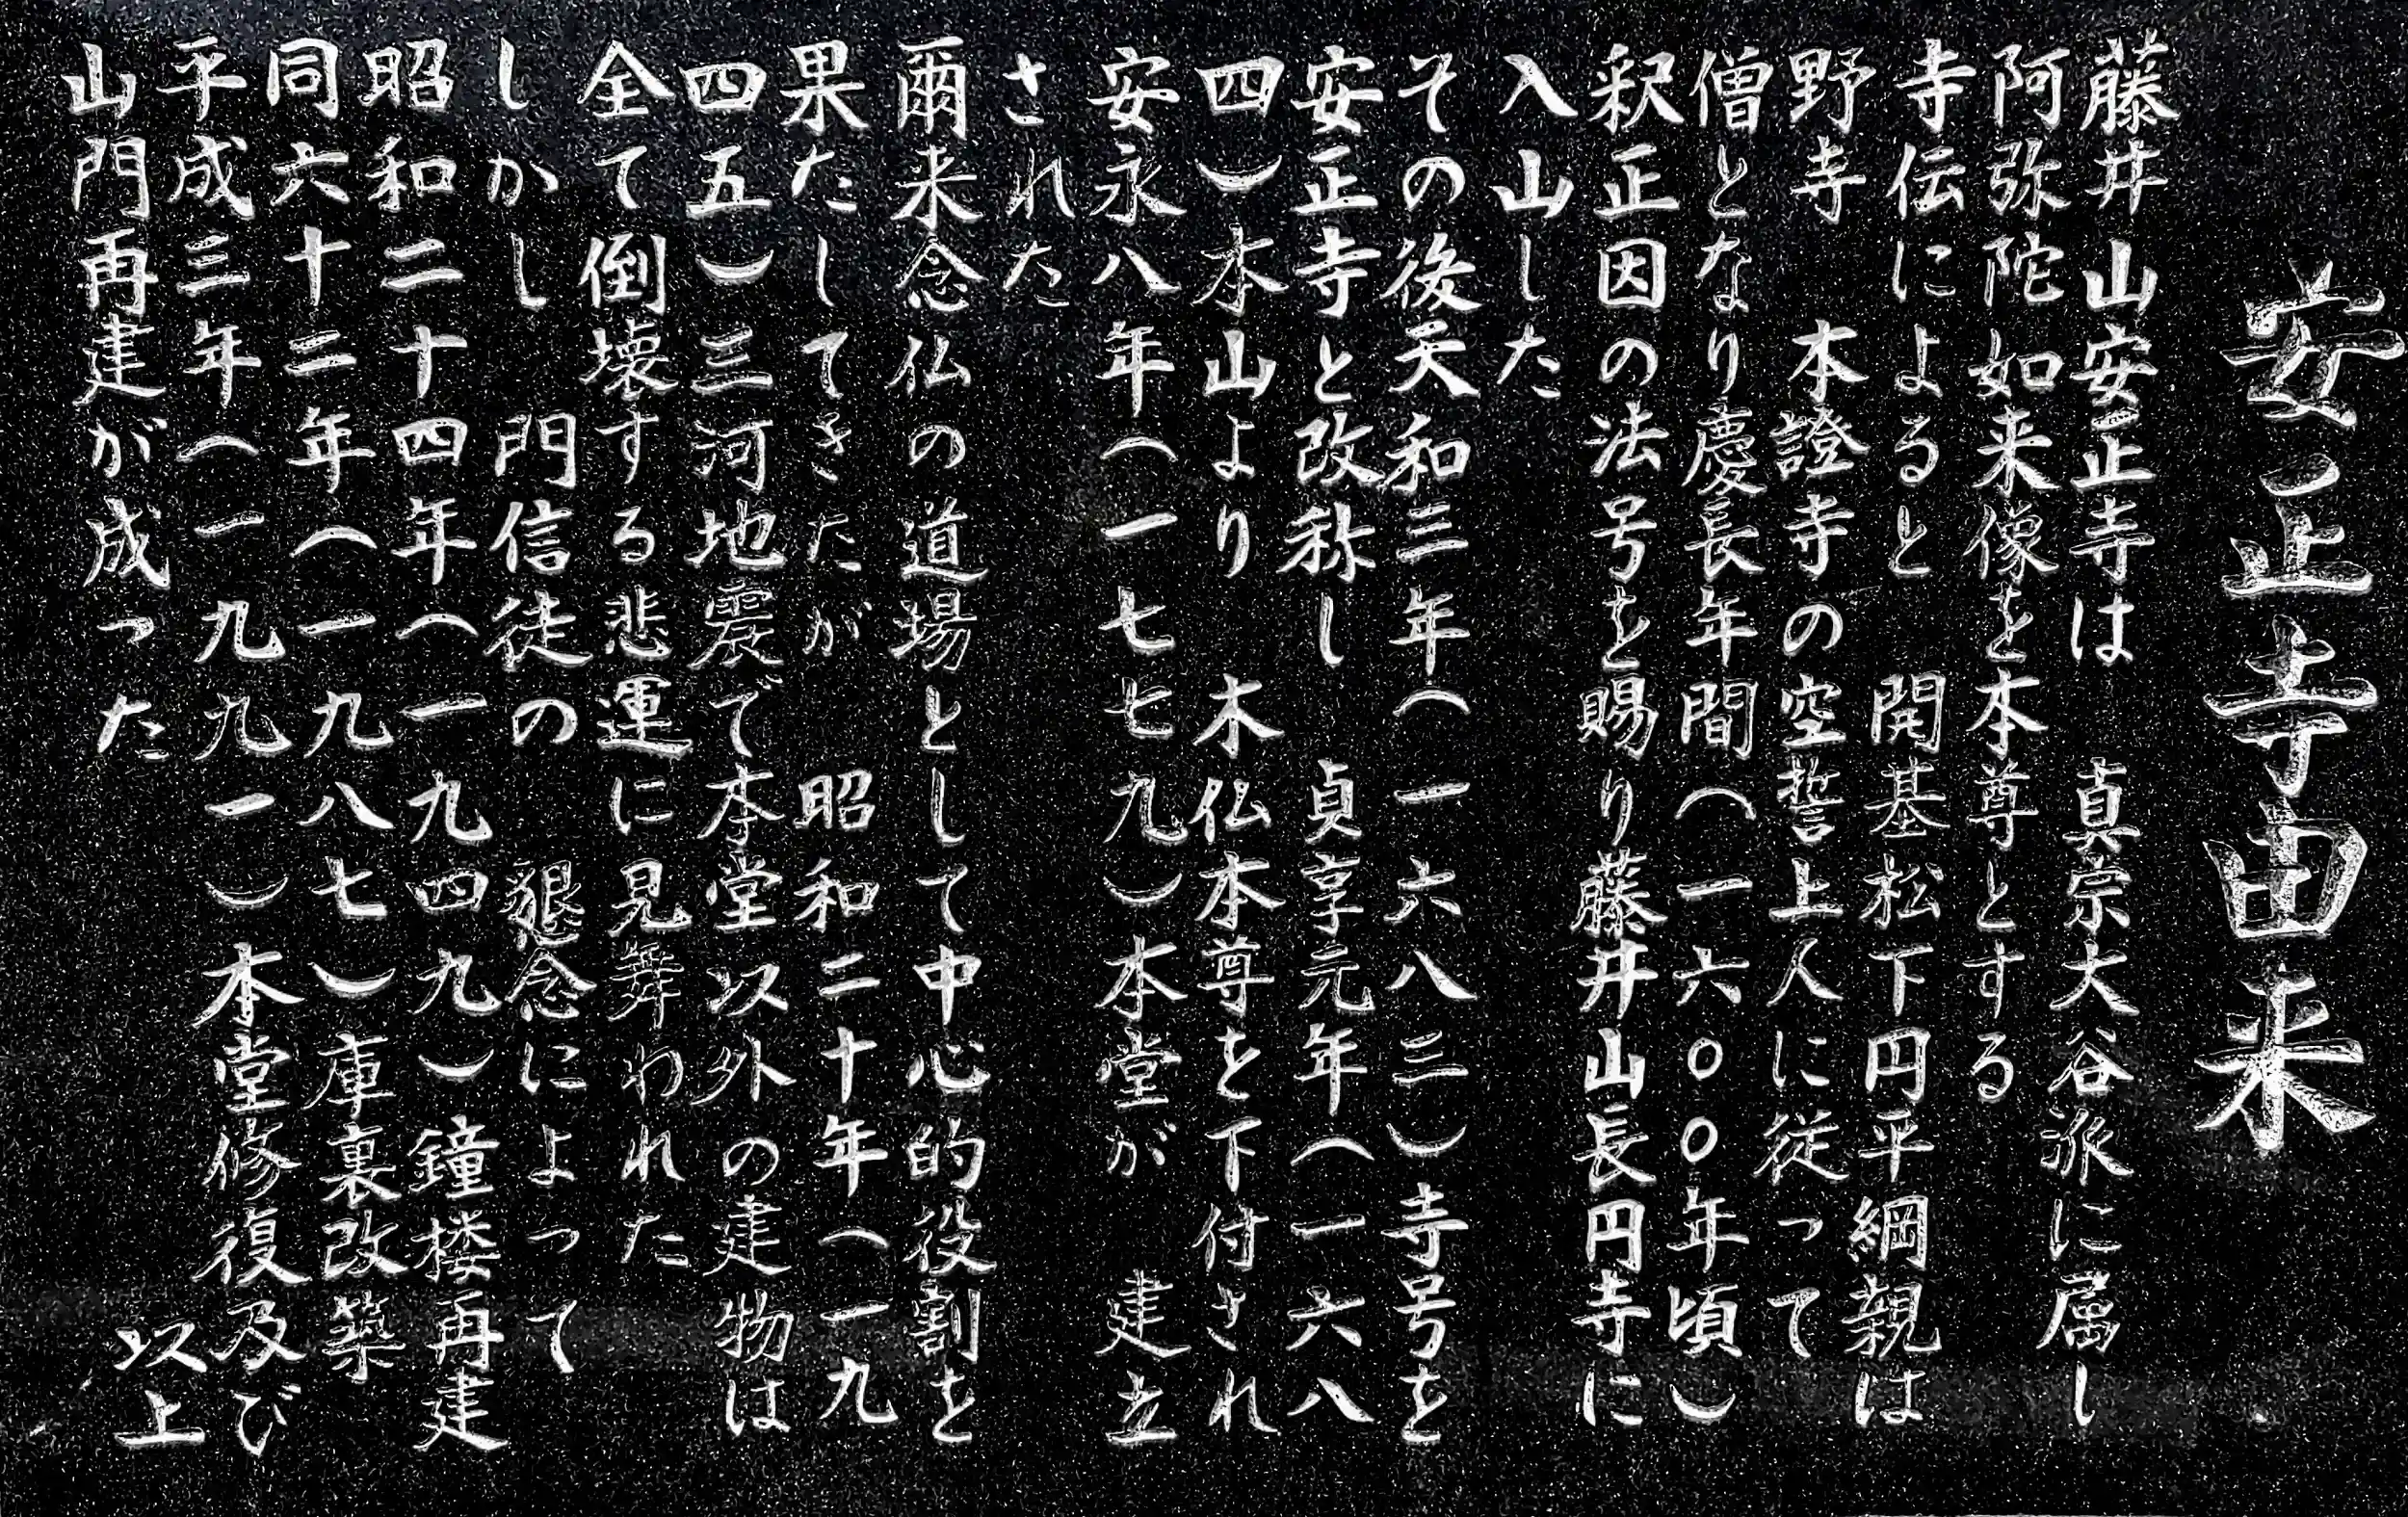 安正寺由来
藤井山安正寺は　真宗大谷派に属し
阿弥陀如来像を本尊とする
寺伝によると　開基松下円平綱親は
野寺　本證寺の空誓上人に従って
僧となり慶長年間（一六〇〇年頃）
釈正因の法号を賜り藤井山長円寺に
入山した
その後天和三年（一六八三）寺号を
安正寺と改称し　貞享元年（一六八
四）本山より　木仏本尊を下付され
安永八年（一七七九）本堂が　建立
された
爾来念仏の道場として中心的役割を
果たしてきたが　昭和二十年（一九
四五）三河地震で本堂以外の建物は
全て倒壊する悲運に見舞われた
しかし　門信徒の　懇念によって
昭和二十四年（一九四九）鐘楼再建
同六十二年（一九八七）庫裏改築
平成三年（一九九一）本堂修復及び
山門再建が成った　以上